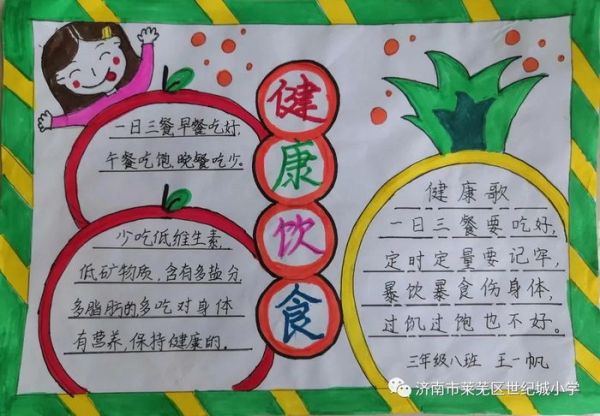 健康饮食
一日三餐早餐吃好,
午餐吃饱,晚餐吃少。
少吃低维生素,
低矿物质,含有多盐分,
多脂肪的多吃对身体
有营养,保持健康的。
健康歌
一日三餐要吃好,
定时定量要记牢,
暴饮暴食伤身体,
过饥过饱也不好。
三年级八班 王一帆
济南市莱芜区世纪城小学